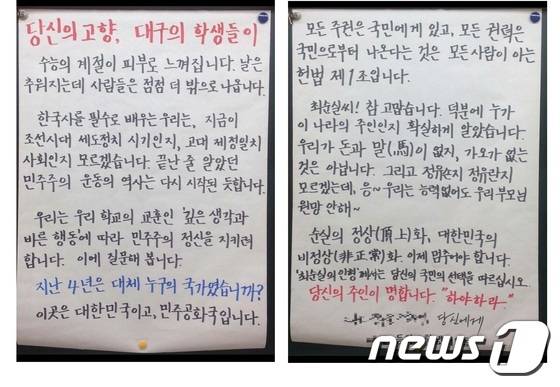 당신의 고향, 대구의 학생들이
수능의 계절이 피부로 느껴집니다. 날은
추워지는데 사람들은 점점 더 밖으로 나옵니다.
한국사를 필수로 배우는 우리는, 지금이
조선시대 세도정치 시기인지, 고대 제정일치
사회인지 모르겠습니다. 끝난 줄 알았던
민주주의 운동의 역사는 다시 시작된 듯합니다.
우리는 우리 학교의 교훈인 '깊은 생각과
바른 행동'에 따라 민주주의 정신을 지키려
합니다. 이에 질문해 봅니다.
지난 4년은 대체 누구의 국가였습니까?
이곳은 대한민국이고, 민주공화국입니다.
모든 주권은 국민에게 있고, 모든 권력은
국민으로부터 나온다는 것은 모든사람이 아는
헌법 제1조입니다.
최순실씨! 참 고맙습니다. 덕분에 누가
이 나라의 주인인지 확실하게 알았습니다.
우리가 돈과 말(馬)이 없지, 가오가 없는
것은 아닙니다. 그리고 정유라인지 정유란지
모르겠는데, 응~ 우리는 능력없어도 우리 부모님
원망 안해~
순실의 정상(頂上)화, 대한민국의
비정상(非正常)화. 이제 멈추어야 합니다.
'최순실의 인형'께서는 당신의 국민의 선택을 따르십시오.
당신의 주인이 명합니다. "하야하라."
당신에게
news1